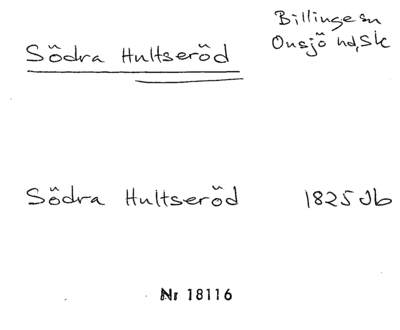 Billinge sn
Södra Hultseröd Onsjö hd, Sk
Södra Hultseröd 1825 Jb
Nr 18116